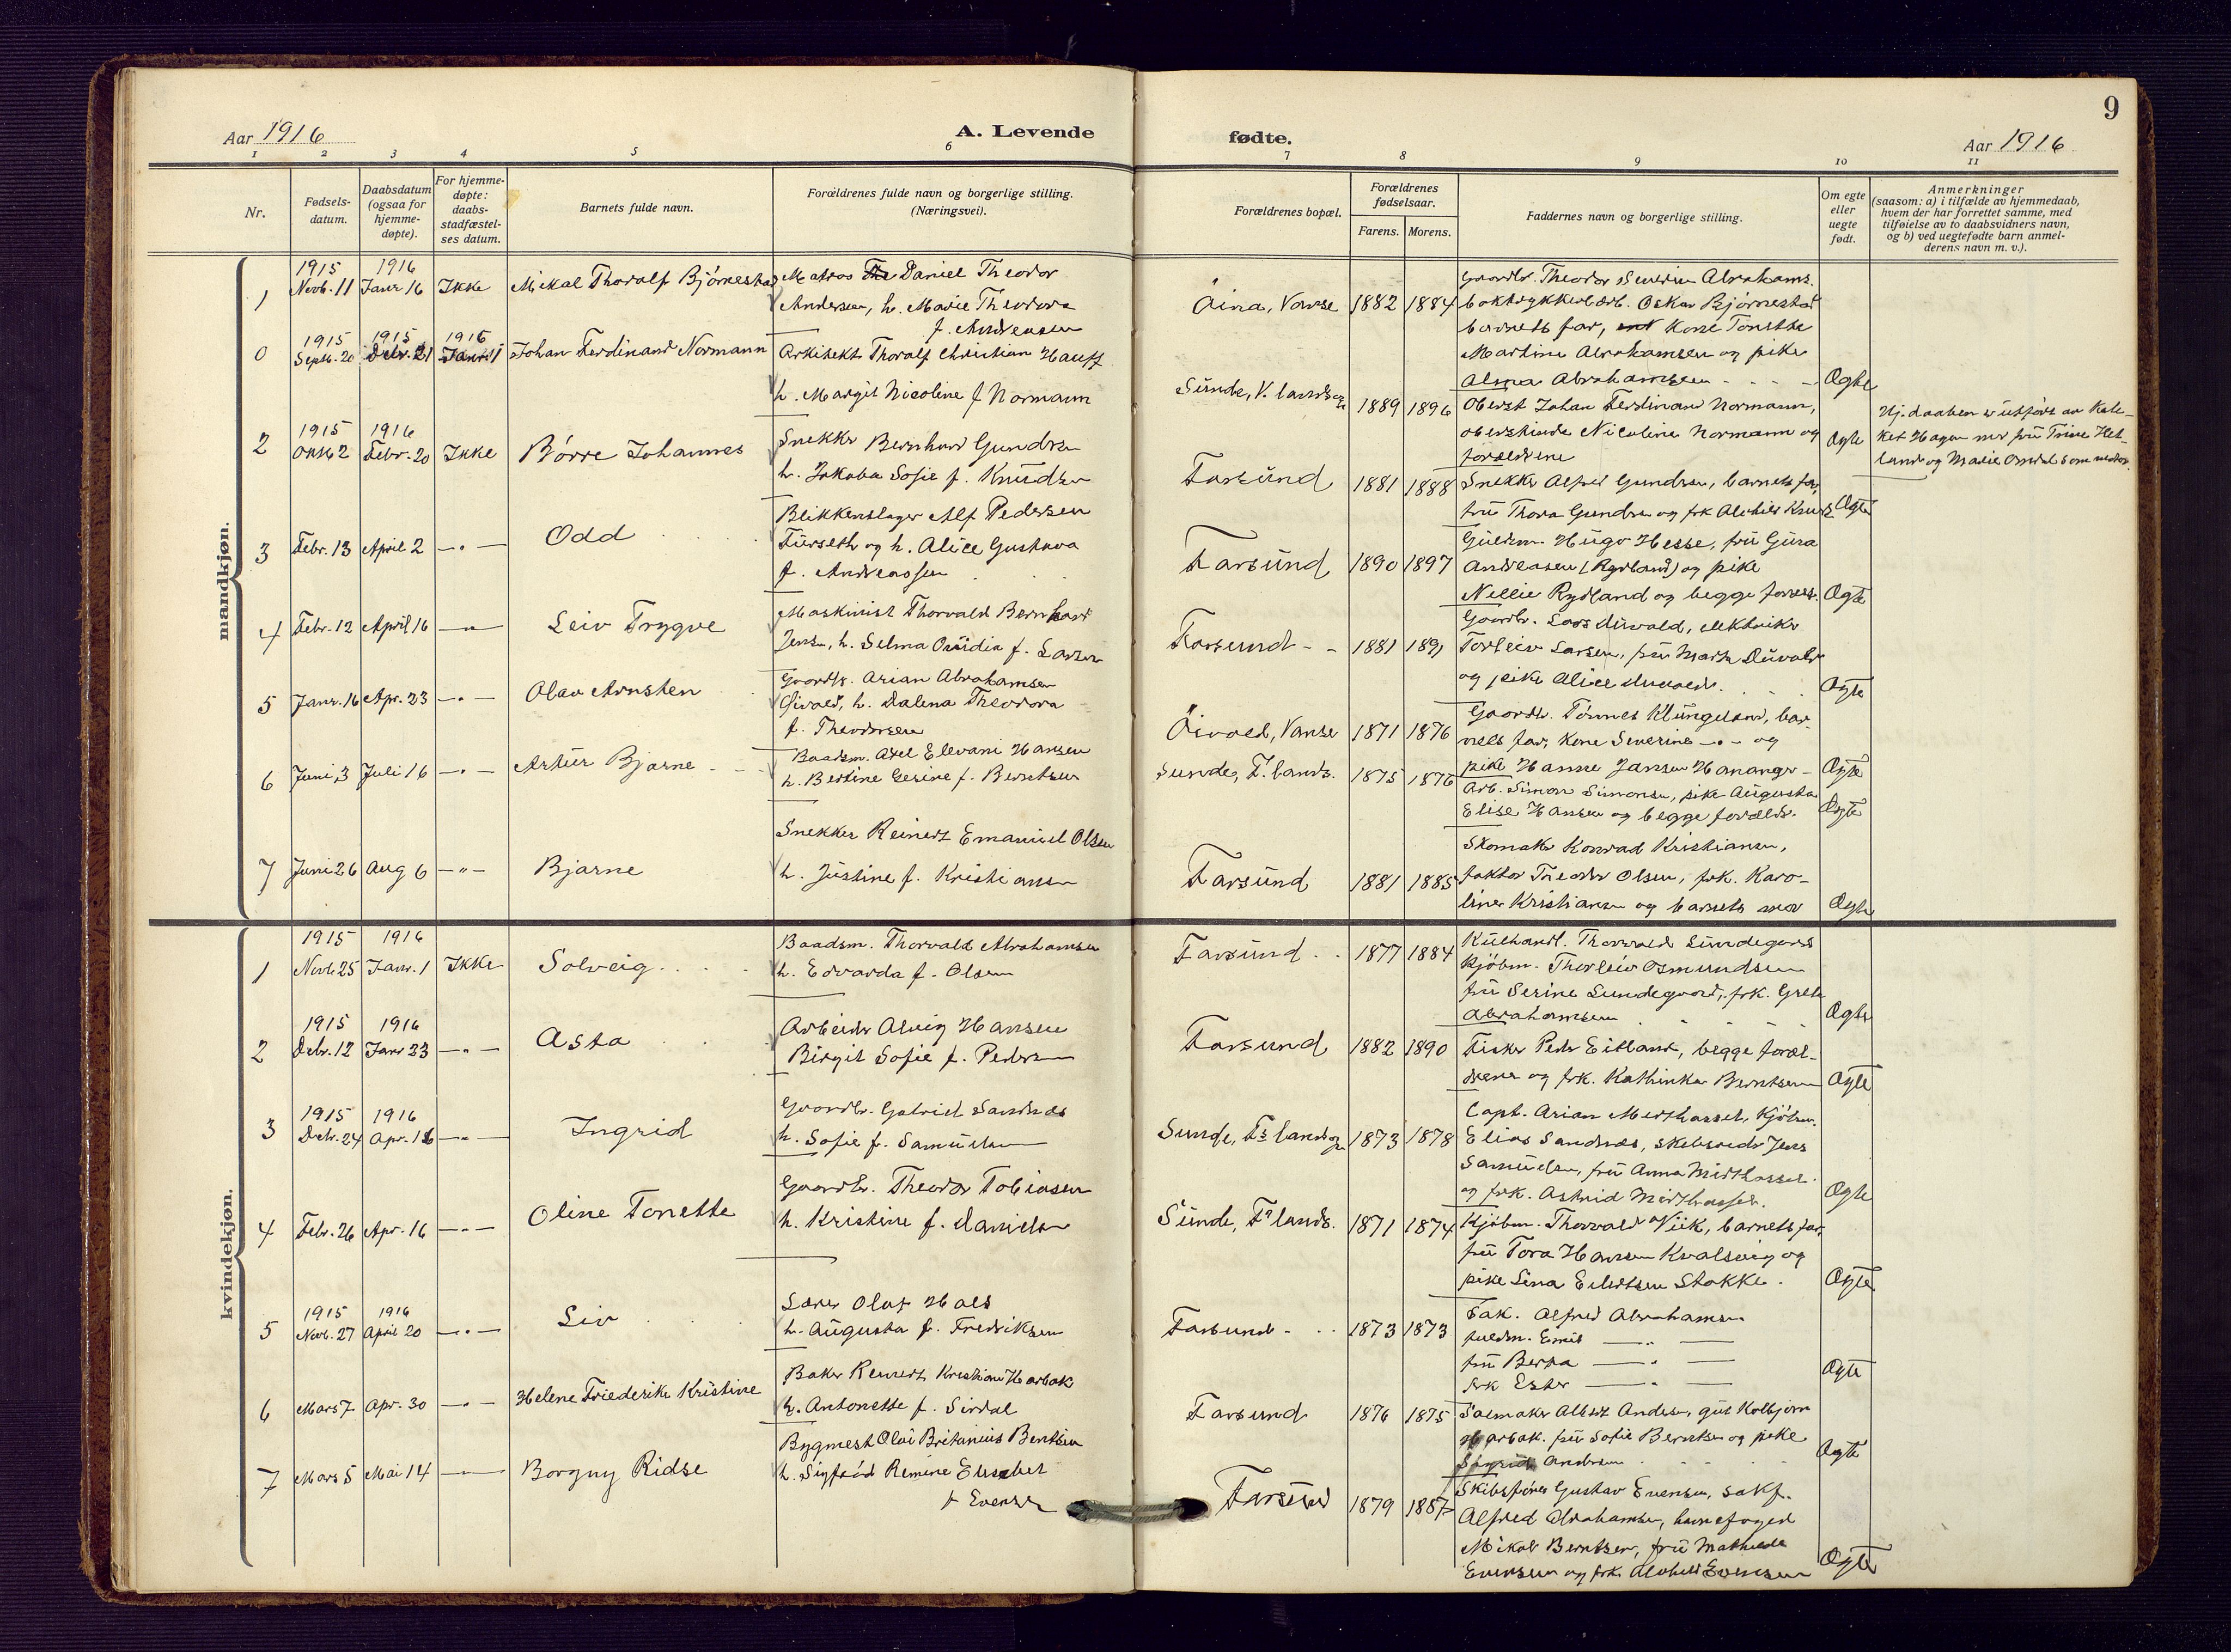 9
Aar 1916
A. Levende
fødte.
Aar 1916
1 2 3 4 5 6 7 8 9 10 11
Nr.
Fødsels-
datum.
Daabsdatum
(ogsaa for
hjemme-
døpte).
For hjemme-
døpte:
daabs-
stadfæstel-
ses datum.
Barnets fulde navn.
Forældrenes fulde navn og borgerlige stilling.
(Næringsvei).
Forældrenes bopæl.
Forældrenes
fødselsaar.
Farens. Morens.
Faddernes navn og borgerlige stilling.
Om egte
eller
uegte
født.
Anmerkninger
(saasom: a) i tilfælde av hjemmedaab,
hvem der har forrettet samme, med
tilføielse av to daabsvidners navn,
og b) ved uegtefødte barn anmel-
derens navn m. v.).
mandkjøn.
1
1915
Novb. 11
1916
Janr 16
Ikke
Mikal Thoralf Bjørnestad
Matros Daniel Theodor
Andersen, h. Marie Theodora
f. Andreasen
Vanse
1882 1884
Gaardbr. Theodor Severin Abrahams.
Oskar Bjørnestad
barnets far, Kone Tonette
Martine Abrahamsen og pike
Alma Abrahamsen
Ægte
0
1915
Septb. 20
1915
Decbr. 21
1916
Janr 1
Johan Ferdinand Normann
Arkitekt Thoralf Christian Hauff
h. Margit Nicoline f Normann
Sunde,
1889 1896
Oberst Johan Ferdinand Normann,
oberstinde Nicoline Normann og
forældrene
Ægte
Hj.daaben er utført av Kate-
ket Hagen med fru Trine Het-
land og Marie som
2
1915
Oktb 2
1916
Febr. 20
Ikke
Børre Johannes
Snekker Bernhard Gundersen
h. Jakoba Sofie f. Knudsen
Farsund
1881 1888
Snekker Alfred Gundersen, barnets far,
fru Thora Gundersen og frk Alvhild
Ægte
3
Febr. 13
April 2
—"—
Odd
Blikkenslager Alf Pedersen
Fürseth og h. Alice Gustava
f. Andreassen
Farsund
1890 1897
Guldsm. Hugo Hesse, fru Gura
Andreasen (Rydland) og pike
Nellie Rydland og begge forældr.
Ægte
4
Febr. 12
April 16
—"—
Leiv Trygve
Maskinist Thorvald Bernhard
Jensen, h. Selma Ovidia f. Larsen
Farsund
1881 1891
Gaardbr. Lars Duvald, elektriker
Torleiv Larsen, fru Marta Duvald
og pike Alice Duvald.
Ægte
5
Janr. 16
Apr. 23
—"—
Olav Arnsten
Gaardbr. Arian Abrahamsen
h. Dalena Theodora
f. Theodorsen
Vanse
1871 1876
Gaardbr. Tønnes Klungeland, bar-
nets far, Kone Severine —"— og
pike Hanne Jansen Hananger
Ægte
6
Juni 3
Juli 16
—"—
Artur Bjarne
Baadsm. Axel Elevani Hansen
h. Bertine Gerine f. Berntsen
Sunde, F. lands.
1875 1876
Arb. Simon Simonsen, pike Augusta
Elise Hansen og begge forældr.
Ægte
7
Juni 26
Aug 6
—"—
Bjarne
Snekker Reinert Emanuel Olsen
h. Justine f. Kristiansen
Farsund
1881 1885
Skomaker Konrad Kristiansen,
faktor Theodor Olsen, frk. Karo-
line Kristiansen og barnets mor
Ægte
kvindekjøn.
1
1915
Novb 25
1916
Janr. 1
Ikke
Solveig
Baadsm. Thorvald Abrahamsen
h. Edvarda f. Olsen
Farsund
1877 1884
Kulhandl. Thorvald Sundegaard
Kjøbm. Thorleiv Osmundsen
fru Serine Sundegaard, frk. Grete
Abrahamsen
Ægte
2
1915
Decbr. 12
1916
Janr 23
—"—
Asta
Arbeider Alvig Hansen
Birgit Sofie f. Pedersen
Farsund
1882 1890
Fisker Peder Eitland, begge foræl-
drene og frk. Kathinka Berntsen
Ægte
3
1915
Decbr. 24
1916
Apr. 16
—"—
Ingrid
Gaardbr. Gabriel Sandnes
h. Sofie f. Samuelsen
Sunde, Fs landsogn
1873 1878
Capt. Arian Midthassel, Kjøbm.
Elias Sandnes, skibsreder Jens
Samuelsen, fru Anna Midthassel
og frk. Astrid Midthassel.
Ægte
4
Febr. 26
Apr. 16
—"—
Oline Tonette
Gaardbr. Theodor Tobiasen
h. Kristine f. Danielsen
Sunde, Fs lands.
1871 1874
Kjøbm. Thorvald Viik, barnets far,
fru Tora Hansen Kvalsvig og
pike Lina Eilertsen Stokke.
Ægte
5
1915
Novb. 27
1916
April 20
—"—
Siv
Lærer Olaf Hals
h. Augusta f. Fredriksen
Farsund
1873 1873
Sak. Alfred Abrahamsen
fuldm. Emil —"—
fru Berta —"—
frk Ester —"—
Ægte
6
Mars 7
Apr. 30
—"—
Helene Friederike Kristine
Baker Reinert Kristian Harbak
h. Antonette f. Sirdal
Farsund
1876 1875
Salmaker Albert Andersen, gut Kolbjørn
Harbak. fru Sofie Berntsen og pike
Sigrid Andersen
Ægte
7
Mars 5
Mai 14
—"—
Borgny Ridse
Bygmest Olai Britanius Bentsen
h. Sigfrid Remine Elisabet
f Evensen
Farsund
1879 1887
Skibsfører Gustav Evensen, sakf.
Alfred Abrahamsen, havnefoged
Mikal Berntsen, fru Mathilde
Evensen og frk. Alvhild Evensen
Ægte